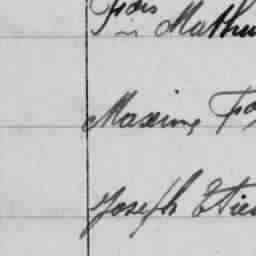 Fois
in Mathu
Maxime Fo
Joseph Etien